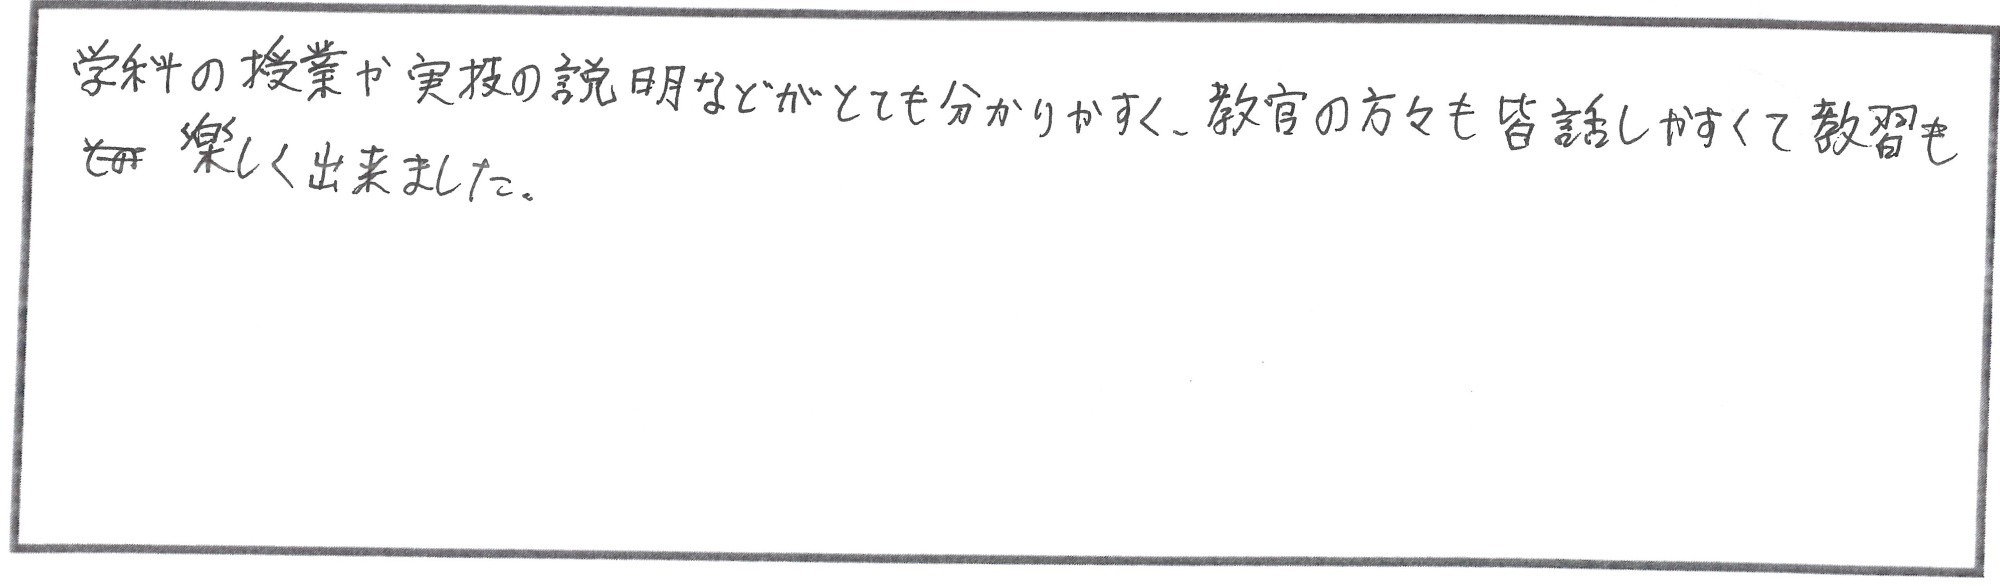 学科の授業や実技の説明などがとても分かりやすく、教官の方々も皆話しやすくて教習も
楽しく出来ました。